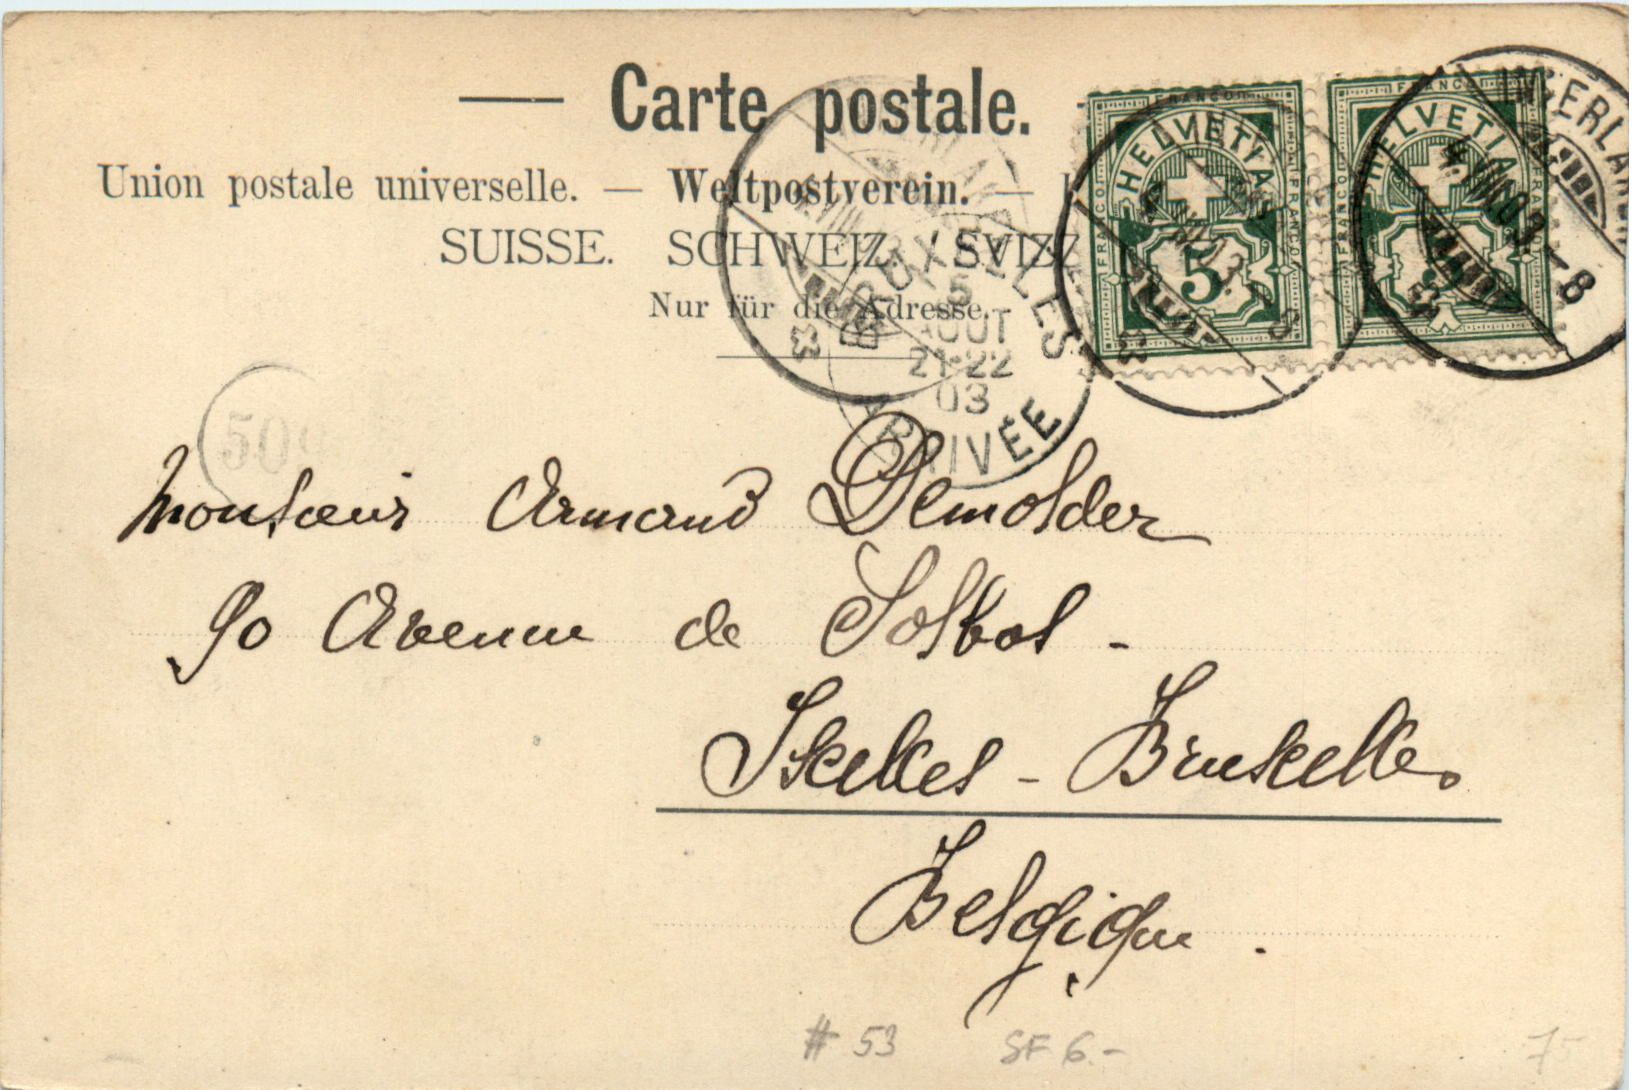 Carte postale.
Union postale universelle. — Weltpostverein. —
SUISSE. SCHWEIZ. SVIZZ
Nur für die Adresse.
FRANCO
HELVETIA
5
FRANCO
HELVETIA
INTERLAKEN
4.VIII.03–8
BRUXELLES
5
AOUT
21-22
03
ARRIVÉE
50
Monsieur Armand Demolder
90 Avenue de
Ixelles - Bruxelles
Belgique.
# 53 SF 6.- 75